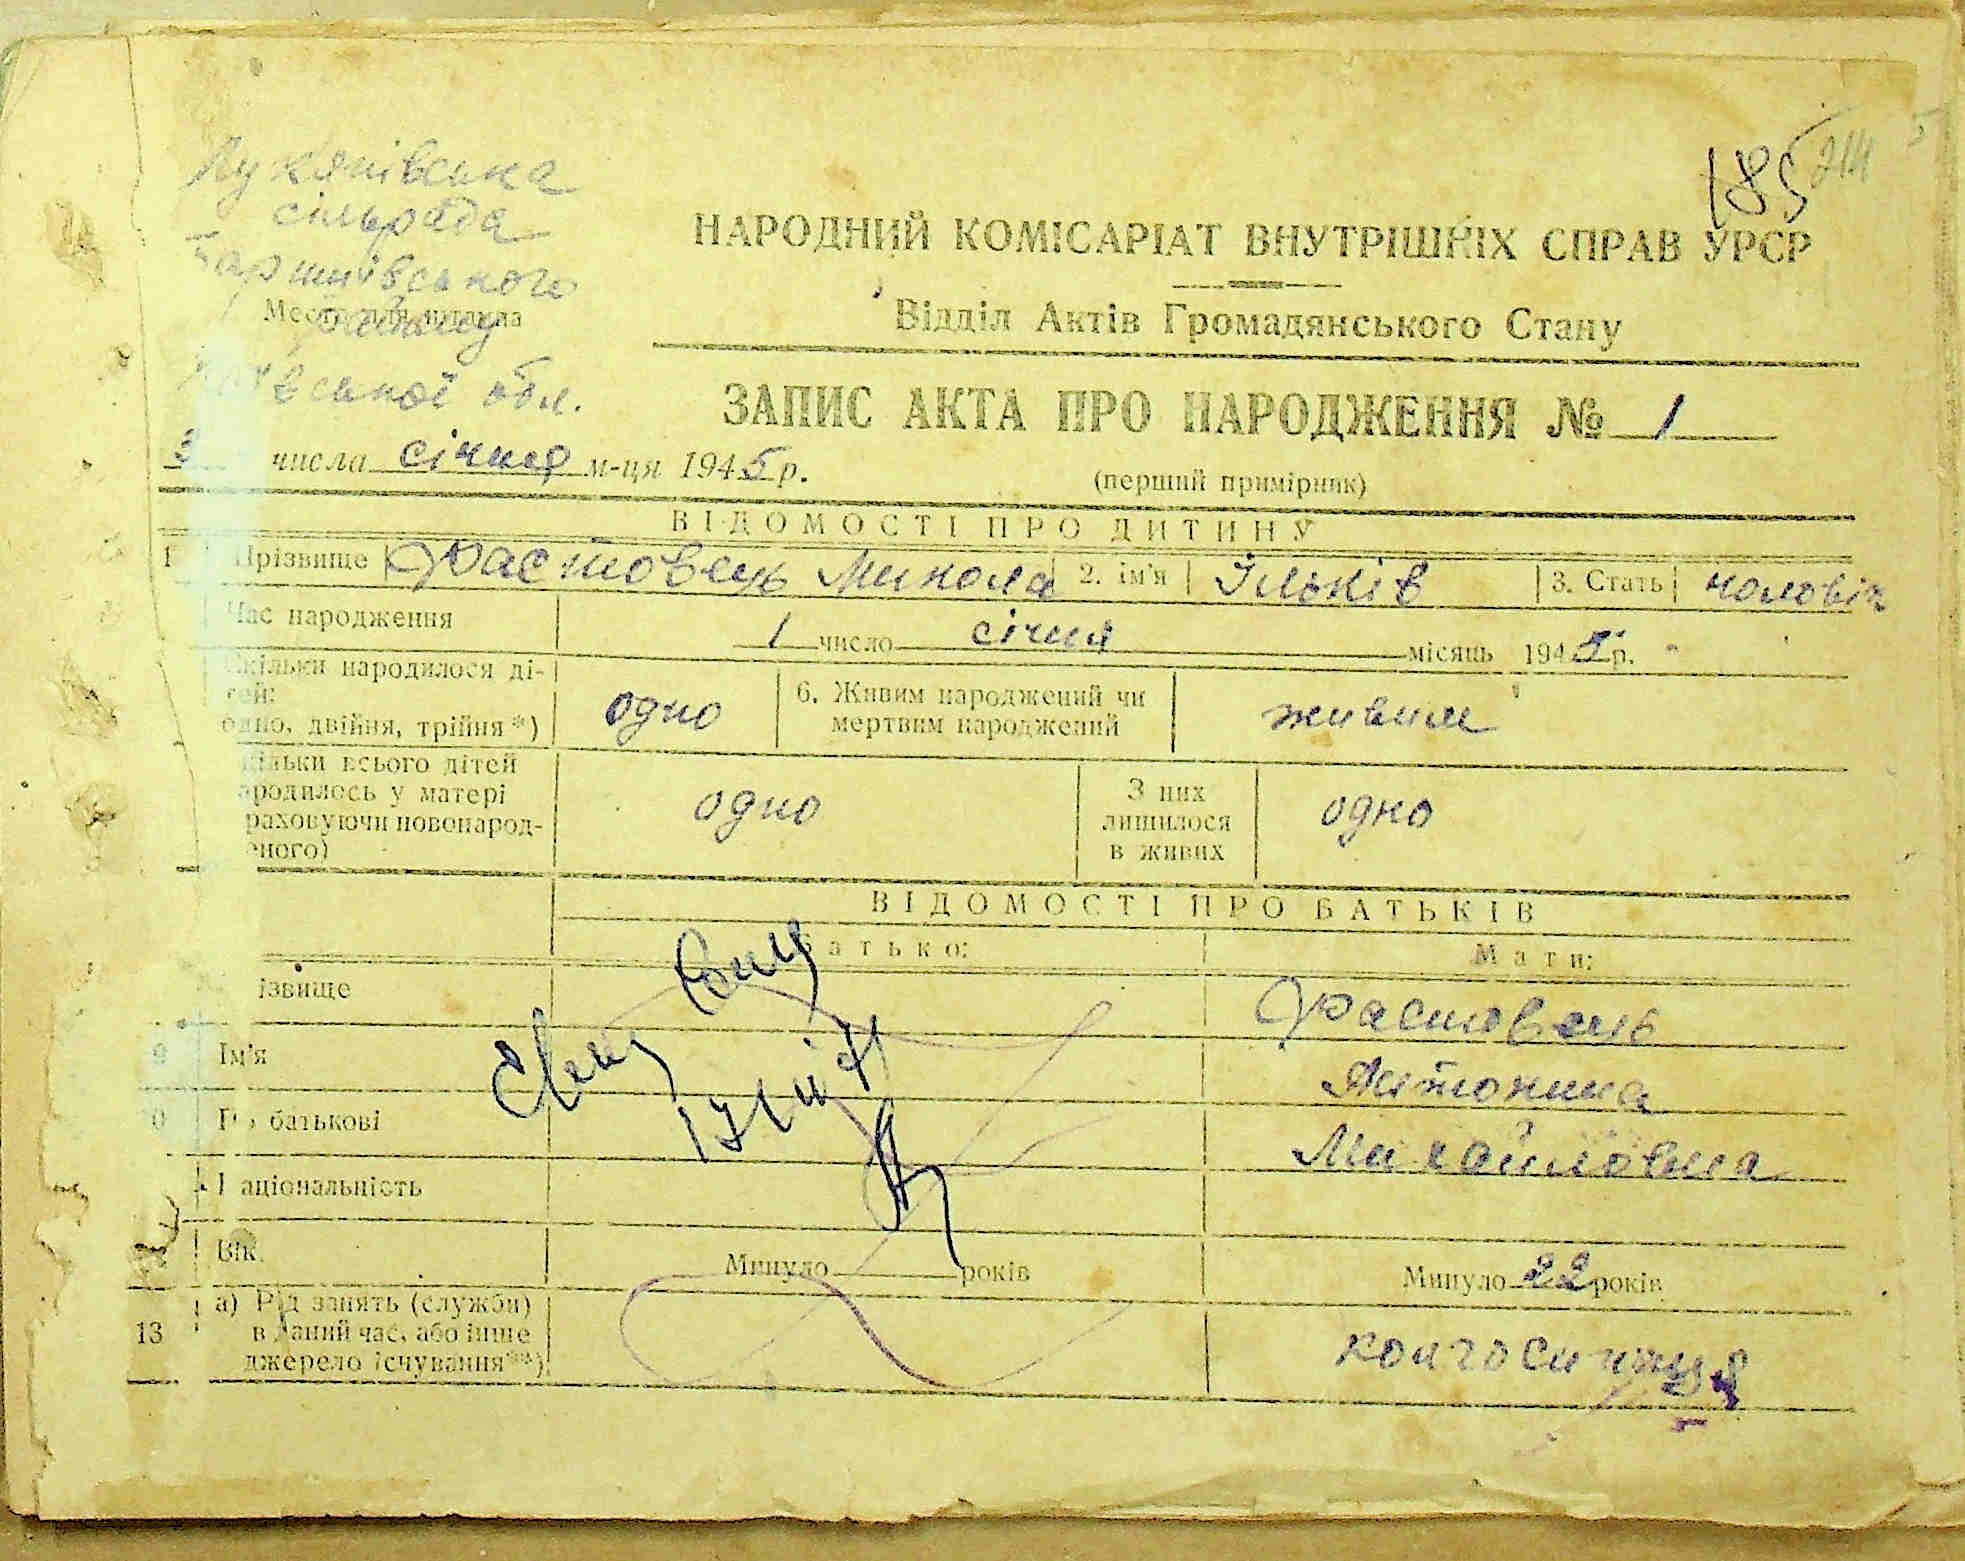 185
Лукянівська
сільрада
Баришівського
Место для штампа
району
Київської обл.
НАРОДНИЙ КОМІСАРІАТ ВНУТРІШНІХ СПРАВ УРСР
Відділ Актів Громадянського Стану
ЗАПИС АКТА ПРО НАРОДЖЕННЯ № 1
3 числа січня м-ця 1945 р.
(перший примірник)
ВІДОМОСТІ ПРО ДИТИНУ
1 Прізвище Фастовець Микола 2. ім'я Ільків 3. Стать
Час народження 1 число січня місяць 1945 р.
Скільки народилося ді-
тей:
одно, двійня, трійня*) одно 6. Живим народжений чи
мертвим народжений живим
кільки всього дітей
ародилось у матері
раховуючи новонарод-
еного) одно З них
лишилося
в живих одно
ВІДОМОСТІ ПРО БАТЬКІВ
Батько: Мати:
ізвище Фастовець
9 Ім'я Антонина
0 По батькові Михайловна
Національність
Вік. Минуло років Минуло 22 років
13 а) Рід занять (служби)
в даний час, або інше
джерело існування**)